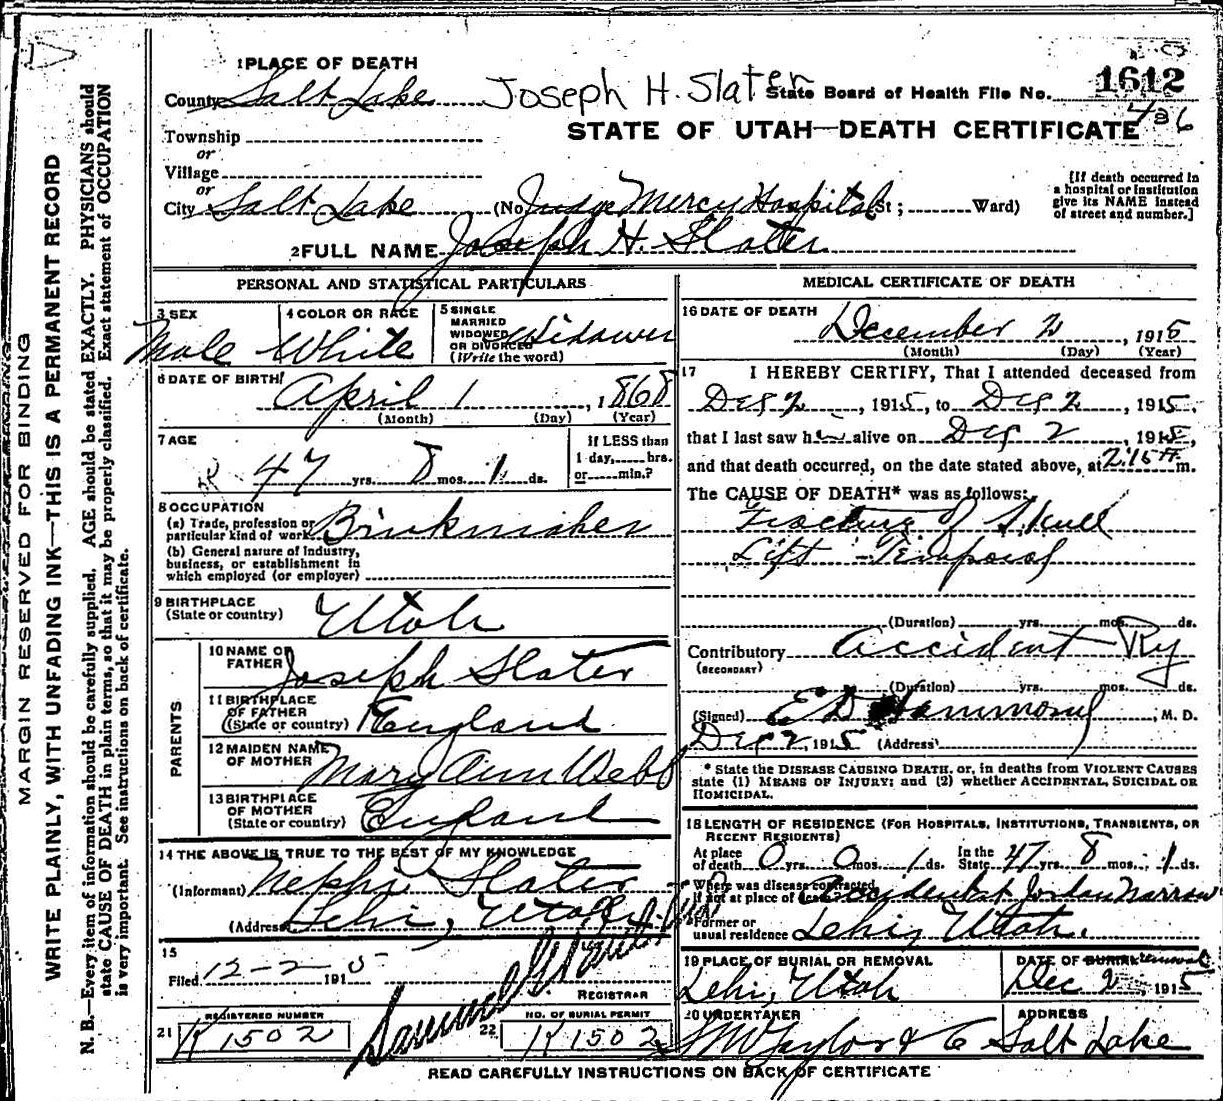 1 PLACE OF DEATH
County Salt Lake Joseph H. Slater State Board of Health File No. 1612
436
Township
STATE OF UTAH—DEATH CERTIFICATE
or
Village
or
City Salt Lake (No. Judge Mercy Hospital St; Ward)
[If death occurred in
a hospital or institution
give its NAME instead
of street and number.]
2 FULL NAME Joseph H. Slater
PERSONAL AND STATISTICAL PARTICULARS
3 SEX
Male
4 COLOR OR RACE
White
5 SINGLE
MARRIED
WIDOWED
OR DIVORCED
(Write the word)
Widower
6 DATE OF BIRTH
April 1, 1868
(Month) (Day) (Year)
7 AGE
47 yrs. 8 mos. 1 ds.
If LESS than
1 day, hrs.
or min.?
8 OCCUPATION
(a) Trade, profession or
particular kind of work Brickmaker
(b) General nature of industry,
business, or establishment in
which employed (or employer)
9 BIRTHPLACE
(State or country) Utah
PARENTS
10 NAME OF
FATHER Joseph Slater
11 BIRTHPLACE
OF FATHER
(State or country) England
12 MAIDEN NAME
OF MOTHER Mary Ann Webb
13 BIRTHPLACE
OF MOTHER
(State or country) England
14 THE ABOVE IS TRUE TO THE BEST OF MY KNOWLEDGE
(Informant) Nephi Slater
(Address) Lehi, Utah
15
Filed 12-2 1915
REGISTRAR
21 REGISTERED NUMBER
K 1502
22 NO. OF BURIAL PERMIT
K 1502
MEDICAL CERTIFICATE OF DEATH
16 DATE OF DEATH
December 2, 1915
(Month) (Day) (Year)
17 I HEREBY CERTIFY, That I attended deceased from
Dec 2, 1915, to Dec 2, 1915.
that I last saw him alive on Dec 2, 1915,
and that death occurred, on the date stated above, at 2:15 m.
The CAUSE OF DEATH* was as follows:
Fracture of Skull
Left - Temporal
(Duration) yrs. mos. ds.
Contributory Accident Ry
(SECONDARY)
(Duration) yrs. mos. ds.
(Signed) E D Hammond, M. D.
Dec 2, 1915 (Address)
* State the DISEASE CAUSING DEATH, or, in deaths from VIOLENT CAUSES
state (1) MEANS OF INJURY; and (2) whether ACCIDENTAL, SUICIDAL OR
HOMICIDAL.
18 LENGTH OF RESIDENCE (FOR HOSPITALS, INSTITUTIONS, TRANSIENTS, OR
RECENT RESIDENTS)
At place
of death 0 yrs. 0 mos. 1 ds. In the
State 47 yrs. 8 mos. 1 ds.
Where was disease contracted
If not at place of death? Accident at Jordan Narrows
Former or
usual residence Lehi, Utah.
19 PLACE OF BURIAL OR REMOVAL
Lehi, Utah
DATE OF BURIAL removal
Dec 2 1915
20 UNDERTAKER
S M Taylor & Co
ADDRESS
Salt Lake
READ CAREFULLY INSTRUCTIONS ON BACK OF CERTIFICATE
MARGIN RESERVED FOR BINDING
WRITE PLAINLY, WITH UNFADING INK—THIS IS A PERMANENT RECORD
N. B.—Every item of information should be carefully supplied. AGE should be stated EXACTLY. PHYSICIANS should
state CAUSE OF DEATH in plain terms, so that it may be properly classified. Exact statement of OCCUPATION
is very important. See instructions on back of certificate.